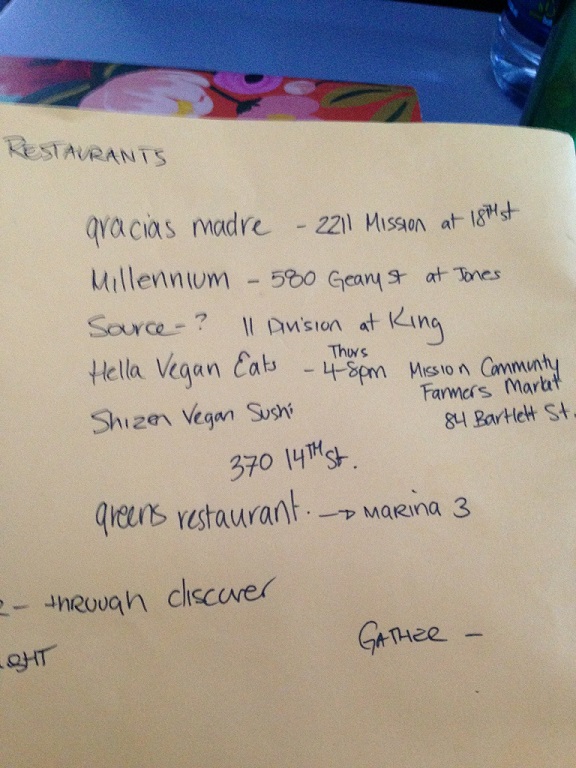 RESTAURANTS
gracias madre - 2211 Mission at 18TH st
Millennium - 580 Geary St at Jones
Source - ? 11 Division at King
Hella Vegan Eats - Thurs 4-8pm Mission Community Farmers Market
84 Bartlett St.
Shizen Vegan Sushi
370 14TH St.
greens restaurant. → MARINA 3
- through discover
GATHER -